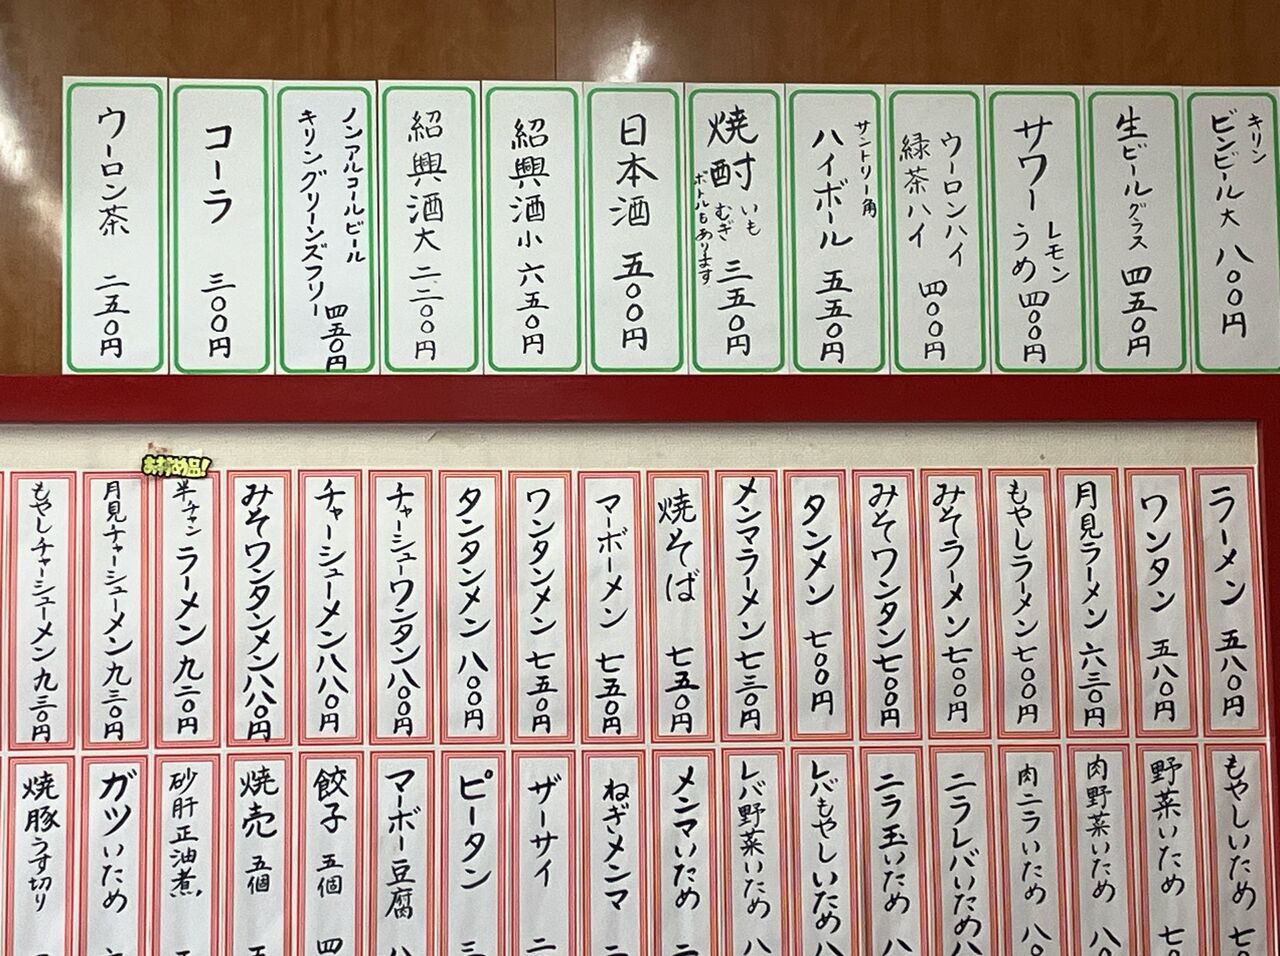 キリン
ビンビール大 八〇〇円
生ビールグラス 四五〇円
サワー レモン
うめ 四〇〇円
ウーロンハイ
緑茶ハイ 四〇〇円
サントリー角
ハイボール 五五〇円
焼酎 いも
むぎ 三五〇円
ボトルもあります
日本酒 五〇〇円
紹興酒小 六五〇円
紹興酒大 二二〇〇円
ノンアルコールビール
キリングリーンズフリー 四五〇円
コーラ 三〇〇円
ウーロン茶 二五〇円
ラーメン 五八〇円
ワンタン 五八〇円
月見ラーメン 六三〇円
もやしラーメン 七〇〇円
みそラーメン 七〇〇円
みそワンタン 七〇〇円
タンメン 七〇〇円
メンマラーメン 七三〇円
焼そば 七五〇円
マーボーメン 七五〇円
ワンタンメン 七五〇円
タンタンメン 八〇〇円
チャーシューワンタン 八〇〇円
チャーシューメン 八八〇円
みそワンタンメン 八八〇円
おすすめ品!
半チャンラーメン 九二〇円
月見チャーシューメン 九三〇円
もやしチャーシューメン 九三〇円
もやしいため 七
野菜いため 七
肉野菜いため 八
肉ニラいため 八
ニラレバいため 八
ニラ玉いため 八
レバもやしいため 八
レバ野菜いため 八
メンマいため
ねぎメンマ
ザーサイ
ピータン 三
マーボー豆腐 八
餃子 五個 四
焼売 五個
砂肝正油煮
ガツいため
焼豚うす切り